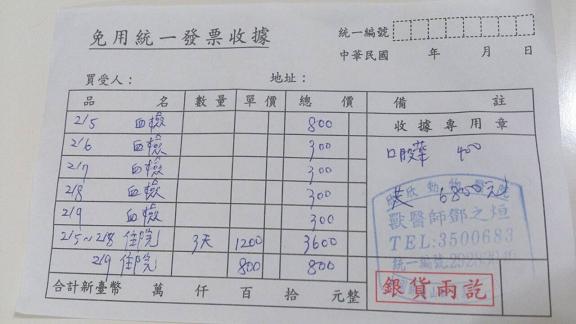 免用統一發票收據
統一編號
中華民國 年 月 日
買受人: 地址:
品名 數量 單價 總價 備註
收據專用章
2/5 血檢 800
2/6 血檢 300
2/7 血檢 300
2/8 血檢 300
2/9 血檢 300
2/5~2/8 住院 3天 1200 3600
2/9 住院 800 800
400
6800元
動物
獸醫師鄧之烜
TEL:3500683
統一編號
銀貨兩訖
合計新臺幣 萬 仟 百 拾 元整